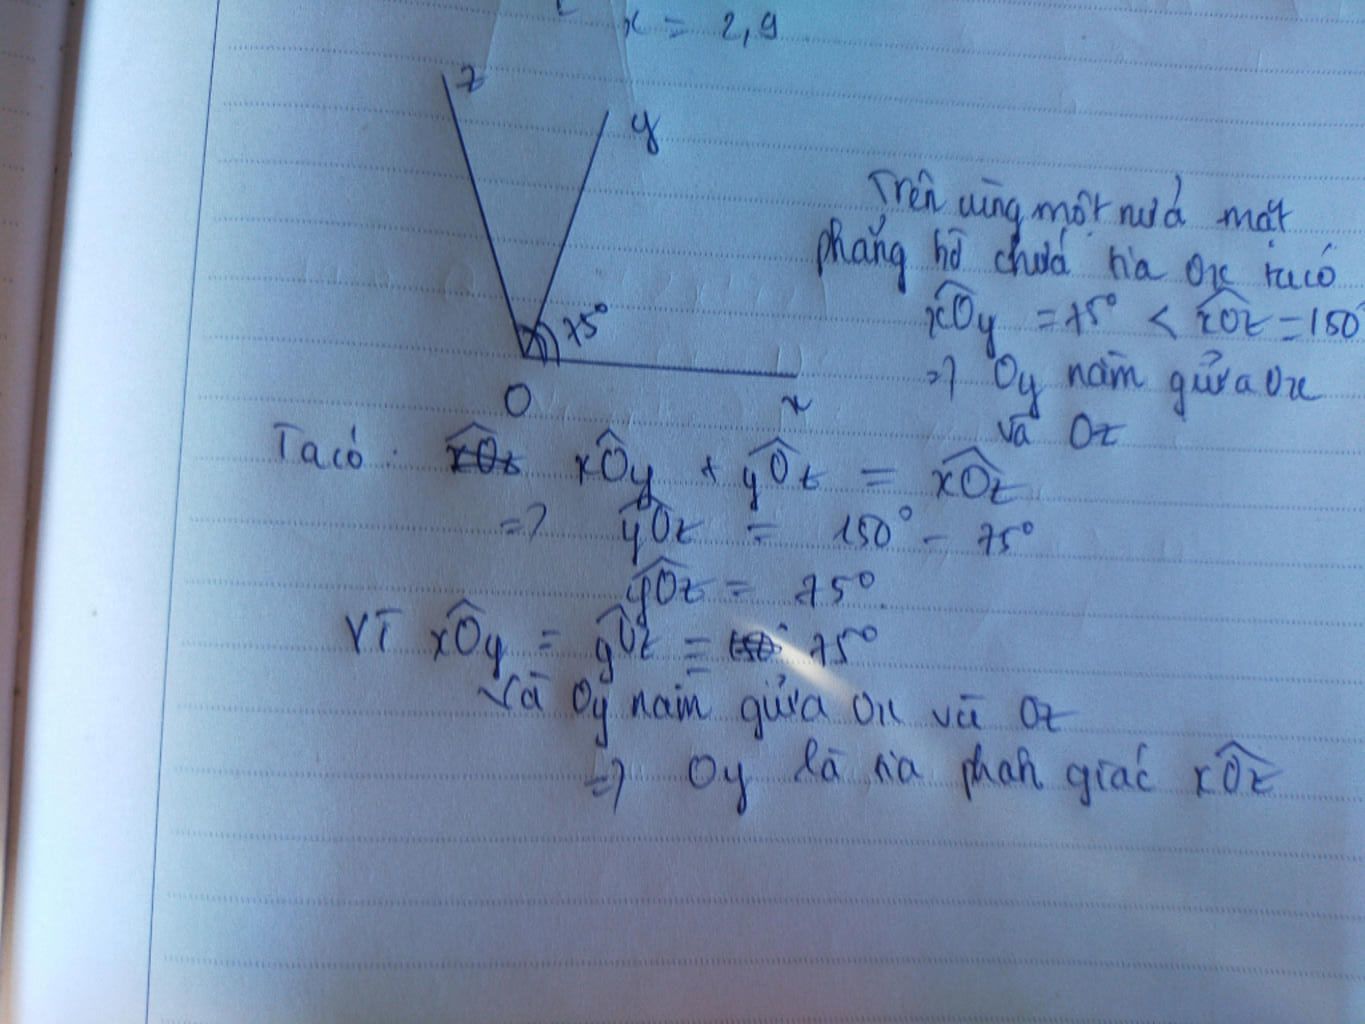 x = 2,9
z
y
75°
O
x
Trên cùng một nửa mặt
phẳng bờ chứa tia Ox ta có
xÔy = 75° < xÔz = 150°
=> Oy nằm giữa Ox
và Oz
Ta có: xÔy + yÔz = xÔz
=> yÔz = 150° - 75°
yÔz = 75°
Vì xÔy = yÔz = 75°
và Oy nằm giữa Ox và Oz
=> Oy là tia phân giác xÔz